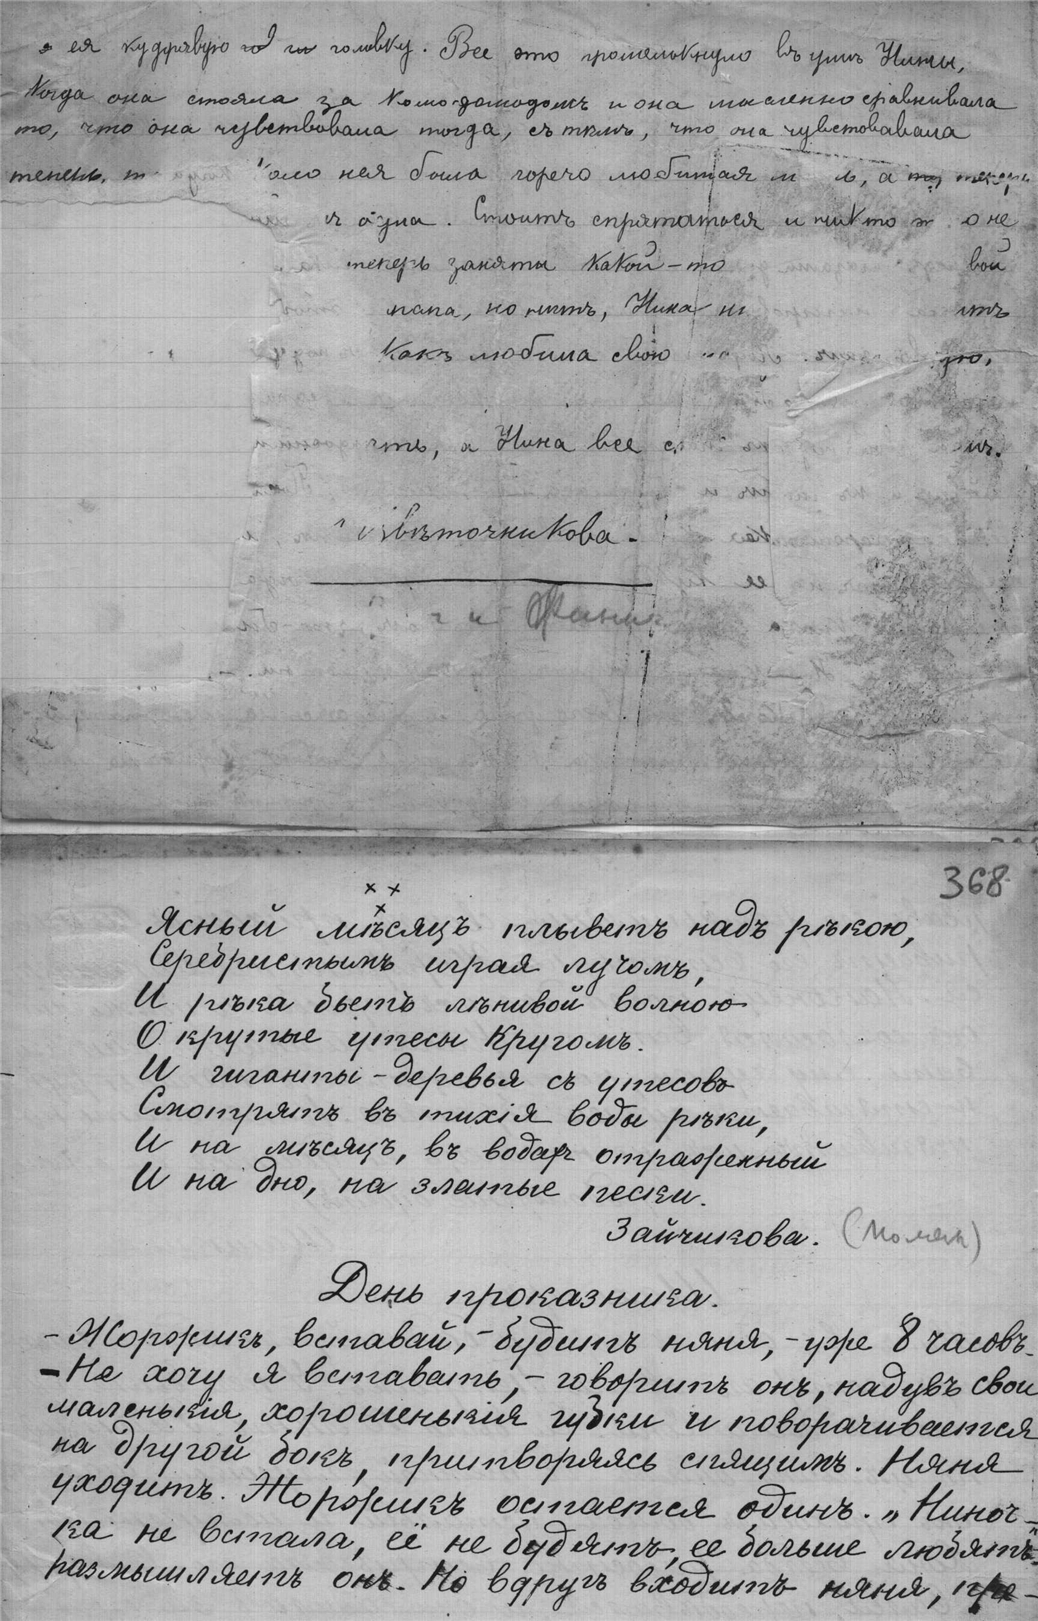 ея кудрявую головку. Все это промелькнуло въ умѣ Нины,
когда она стояла за и она мысленно сравнивала
то, что она чувствовала тогда, съ тѣмъ, что она чувствовала
теперь. нея была горячо любимая а
одна. Стоитъ спрятаться и никто о не
теперь заняты какой-то вой
папа, но нѣтъ, Нина
Какъ любила свою
а Нина все
Цвѣточникова.
368
× ×
×
Ясный мѣсяцъ плыветъ надъ рѣкою,
Серебристымъ играя лучомъ,
И рѣка бьетъ лѣнивой волною
О крутые утесы кругомъ.
И гиганты-деревья съ утесовъ
Смотрятъ въ тихія воды рѣки,
И на мѣсяцъ, въ водахъ отраженный
И на дно, на златые пески.
Зайчикова.
День проказника.
- Жоржикъ, вставай, - будитъ няня, - уже 8 часовъ.
- Не хочу я вставать, - говоритъ онъ, надувъ свои
маленькія, хорошенькія губки и поворачивается
на другой бокъ, притворяясь спящимъ. Няня
уходитъ. Жоржикъ остается одинъ. „Нинoч-
ка не встала, её не будятъ, ее больше любятъ"
размышляетъ онъ. Но вдругъ входитъ няня, при-